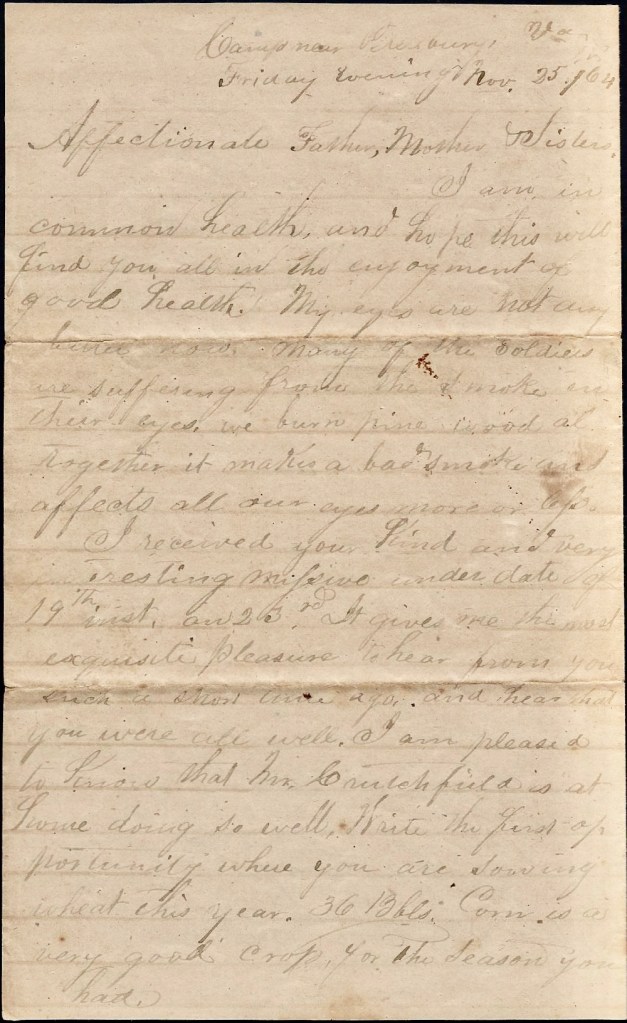 Camp near Petersburg, Va
Friday Evening Nov. 25. /64
Affectionate Father, Mother & Sisters,
I am in
common health, and hope this will
find you all in the enjoyment of
good health. My eyes are not any
now. Many of the soldiers
are suffering from the smoke in
their eyes. we burn pine wood al
together it makes a bad smoke and
affects all our eyes more or less.
I received your kind and very
tresting missive under date of
19th inst. on 23rd. It gives me the most
exquisite pleasure to hear from you
such a short time ago, and hear that
you were all well. I am pleased
to know that Mr. Crutchfield is at
home doing so well. Write the first op
portunity where you are sowing
wheat this year. 36 Bbls. Corn is a
very good crop, for the season you
had.